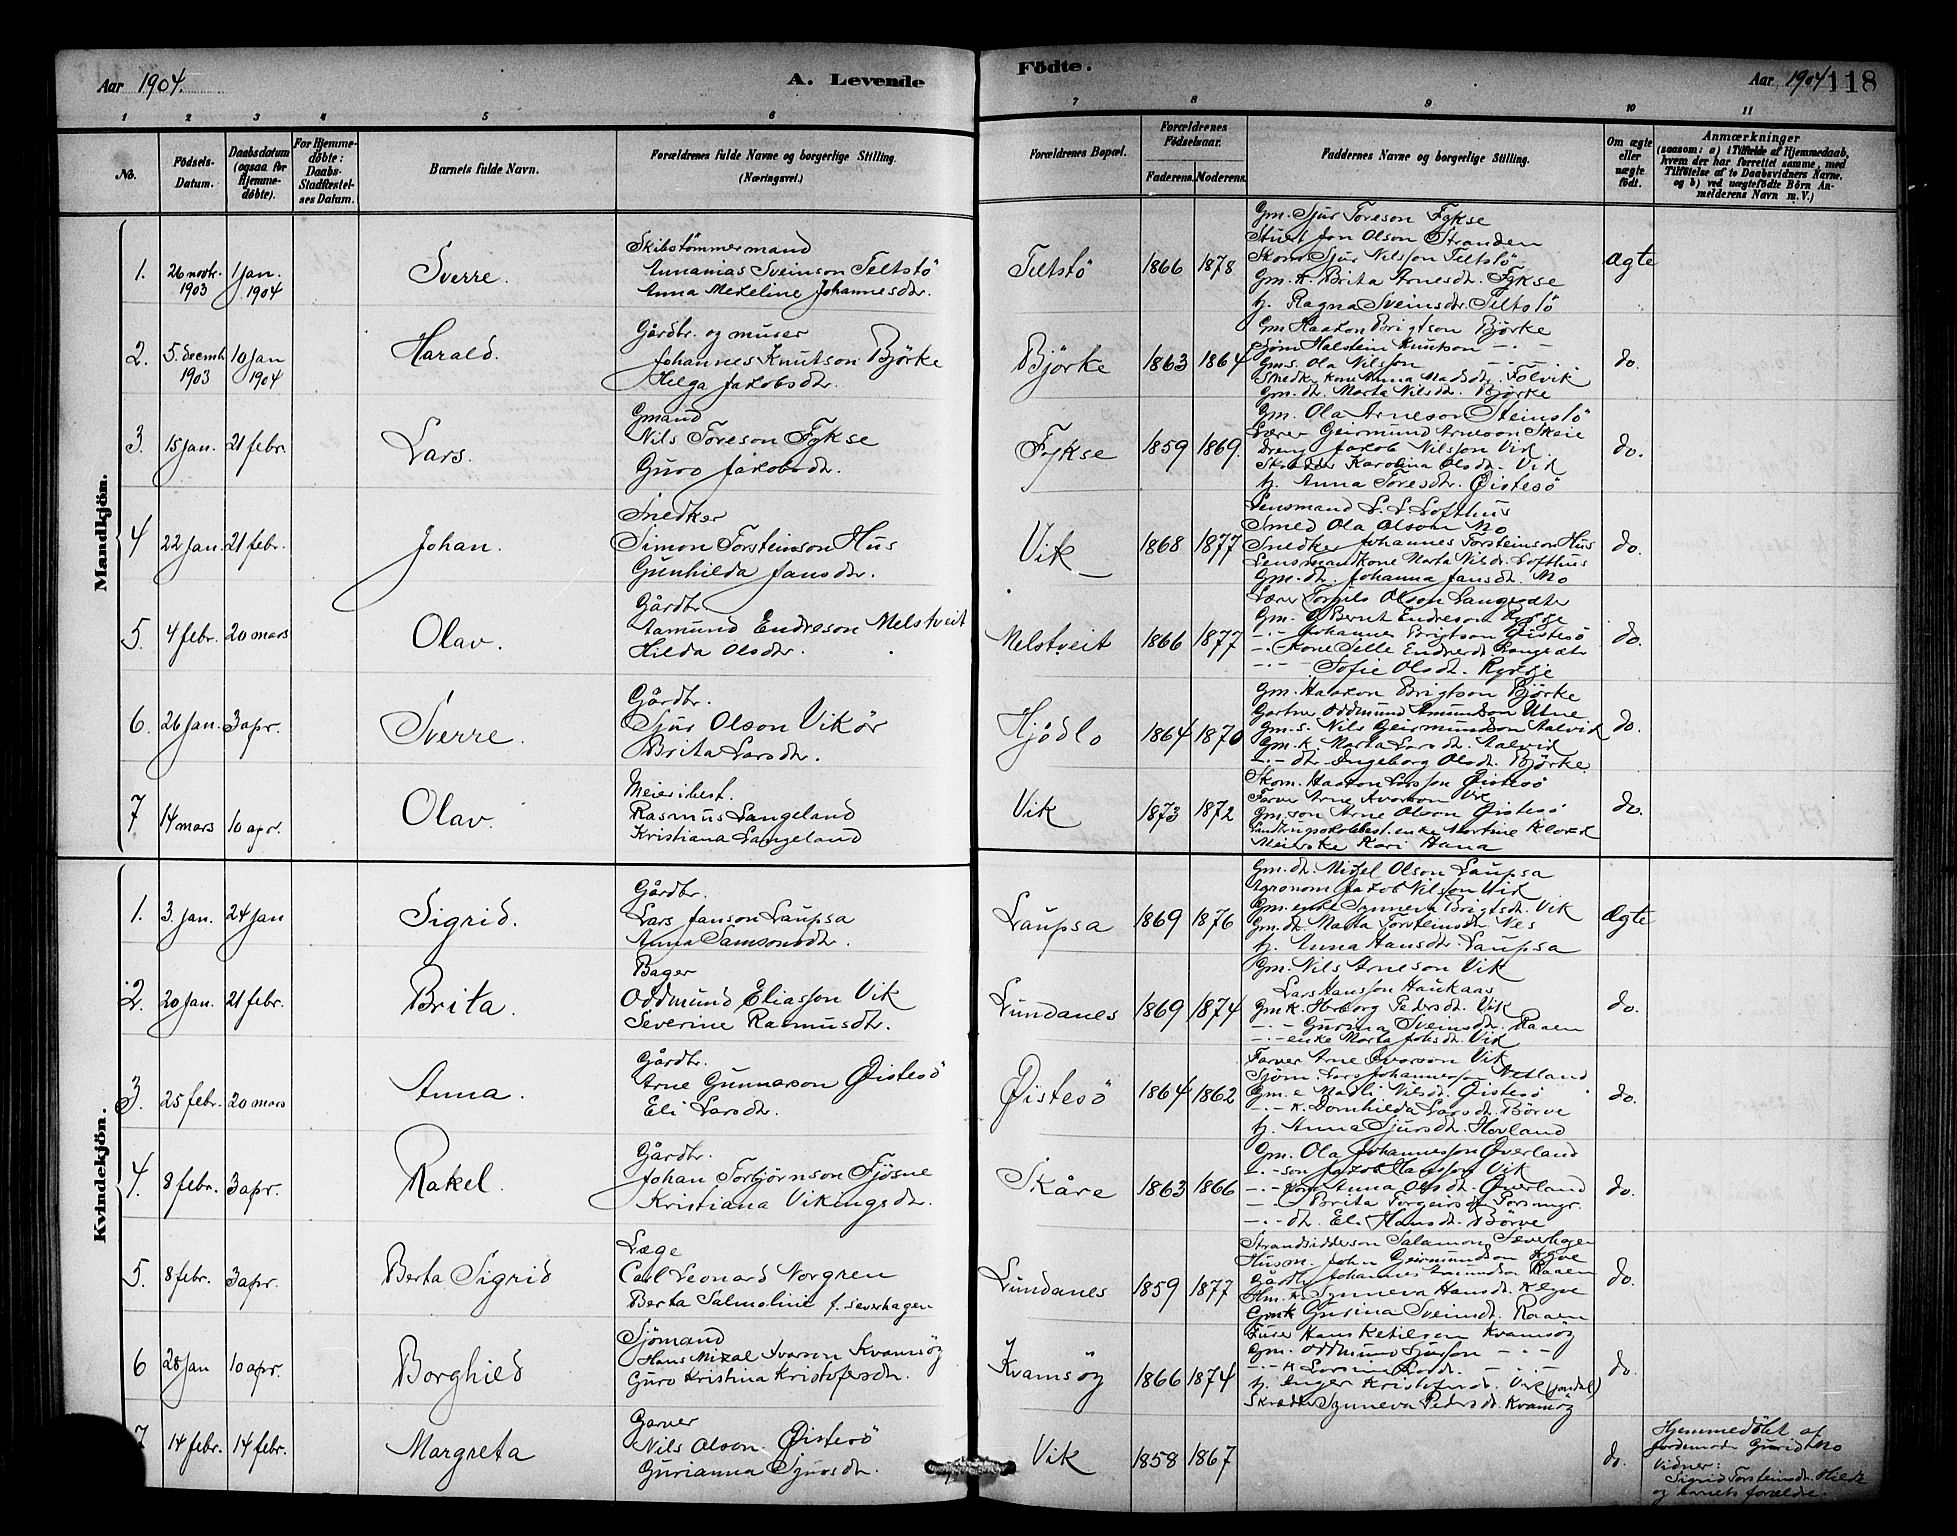 Aar 1904.
A. Levende
Födte.
Aar 1904
118
1 2 3 4 5 6 7 8 9 10 11
No.
Födsels-
Datum.
Daabsdatum
(ogsaa for
Hjemme-
døbte).
For Hjemme-
døbte:
Daabs-
Stadfæstel-
ses Datum.
Barnets fulde Navn.
Forældrenes fulde Navne og borgerlige Stilling.
(Næringsvei.)
Forældrenes Bopæl.
Forældrenes
Födselsaar.
Faderens. Moderens.
Faddernes Navne og borgerlige Stilling.
Om ægte
eller
uægte
födt.
Anmærkninger
(saasom: a) i Tilfælde af Hjemmedaab,
hvem der har forrettet samme, med
Tilföielse af to Daabsvidners Navne,
og b) ved uægtefödte Börn An-
melderens Navn m. V.)
Mandkjön.
1. 26 novbr. 1903
1 jan. 1904
Sverre.
Skibstömmermand
Annanias Sveinson Teltslö
Anna Mekeline Johannesdr.
Teltslö 1866 1878
Gm. Sjur Toreson Fykse
Jon Olson Stranden
Skom. Sjur Nilsson Teltslö
Gm. k. Brita Arnesdr. Fykse
Ragna Sveinsdr. Teltslö
Ægte
2. 5. decemb. 1903
10 jan 1904
Harald.
Gårdbr. og murer
Johannes Knutson Björke
Helga Jakobsdr.
Björke 1863 1864
Gm Haakon Brigtson Björke
Halstein Knutson -"-
Gms. Ola Nilsson -"-
Snedker kone Anna Madsdr. Folvik
Gm. dr. Marta Nilsdr. Björke
do.
3. 15 jan. 21 febr.
Lars.
Gmand
Nils Toreson Fykse
Guro Jakobsdr.
Fykse 1859 1869
Gm. Ola Arneson Steinslö
Lærer Geirmund Arneson Skeie
Dreng Jakob Nilsson Vik
Karolina Olsdr. Vik
Anna Toresdr. Öistesö
do.
4 22 jan. 21 febr.
Johan.
Snedker
Simon Torsteinson Hus
Gunhilda Jansdr.
Vik 1868 1877
Lensmand L. L. Lofthus
Smed Ola Olson Mo
Snedker Johannes Torsteinson Hus
Lensmandkone Marta Nilsdr. Lofthus
Gm. dr. Johanna Jansdr. Mo
do.
5. 4 febr. 20 mars
Olav.
Gårdbr.
Aamund Endreson Melstveit
Hilda Olsdr.
Melstveit 1866 1877
Lærer Torgils Olson
Gm. Bernt Endreson
-"- Johannes Brigtson Öistesö
-"- Kone
-"- Sofie Olsdr.
do.
6. 26 jan. 3 apr.
Sverre.
Gårdbr.
Sjur Olson Vikör
Brita Larsdr.
Hjödlo 1864 1870
Gm. Haakon Brigtson Björke
Gartner Oddmund Amundson Utne
Gm. s. Nils Geirmundson Aalvik
Gm. k. Marta Larsdr. Aalvik
-"- dtr Ingeborg Olsdr. Björke
do.
7. 14 mars 10 apr.
Olav.
Meieribest.
Rasmus Langeland
Kristiana Langeland
Vik 1873 1872
Skom. Haakon Larsson Öistesö
Farver Arne Ivarson Vik
Gm. son Arne Olson Öistesö
enke Martine
Meierske Kari Hana
do.
Kvindekjön.
1. 3. jan. 24 jan
Sigrid.
Gårdbr.
Lars Janson Laupsa
Anna Samsonsdr.
Laupsa 1869 1876
Mikkel Olson Laupsa
Agronom Jakob Nilsson Vik
Gm. enke Synneva Brigtsdr. Vik
Gm. dr. Marta Torsteinsdr. Nes
Anna Hansdr. Laupsa
Ægte
2. 20 jan. 21 febr.
Brita.
Bager
Oddmund Eliasson Vik
Severine Rasmusdr.
Lundanes 1869 1874
Gm. Nils Arneson Vik
Lars Hansson Haukaas
Gm k. Herborg Pedersdr. Vik
-"- Gurina Sveinsdr. Raaen
-"- enke Marta Johsdr. Vik
do.
3. 25 febr. 20 mars
Anna.
Gårdbr.
Arne Gunnarson Öistesö
Eli Larsdr.
Öistesö 1864 1862
Farver Arne Ivarson Vik
Sjöm. Lars Johannesson Netland
Gm. e Madli Nilsdr. Öistesö
-"- k. Larsdr. Börve
Anna Sjursdr. Hovland
do.
4. 8 febr. 3 apr.
Rakel.
Gårdbr.
Johan Torbjörnson Fjösne
Kristiana Vikingsdr.
Skåre 1863 1866
Gm. Ola Johannesson Överland
-"- son Jakob Hansson Vik
-"- kone Anna Olsdr. Överland
-"- Brita Torgeirsdr.
-"- dr. Eli Hansdr. Börve
do.
5. 8 febr. 3 apr.
Berta Sigrid
Læge
Carl Leonard Norgren
Berta Salmoline f. Severhagen
Lundanes 1859 1877
Strandsidderson Salamon Severhagen
Husm. John Geirmundson
Gårdbr Johannes Amundson Raaen
Hm. k. Synneva Hansdr.
Gmk Gurina Sveinsdr. Raaen
do.
6 28 jan 10 apr.
Borghild
Sjömand
Hans Mikal Ivarson Kvamsöy
Guro Kristina Kristofersdr.
Kvamsöy 1866 1874
Hans Ketilson Kvamsöy
Gm. Oddmund Sjursson -"-
-"- k
Inger Kristofersdr. Vik (Jondal)
Synneva Pedersdr. Kvamsöy
do.
7 14 febr. 14 febr.
Margreta
Garver
Nils Olson Öistesö
Gurianna Sjursdr.
Vik 1858 1867
do.
Hjemmedöbt af
jordemoder Gurid Mo
Vidner:
Sigrid Torsteinsdr.
og barnets forældre.